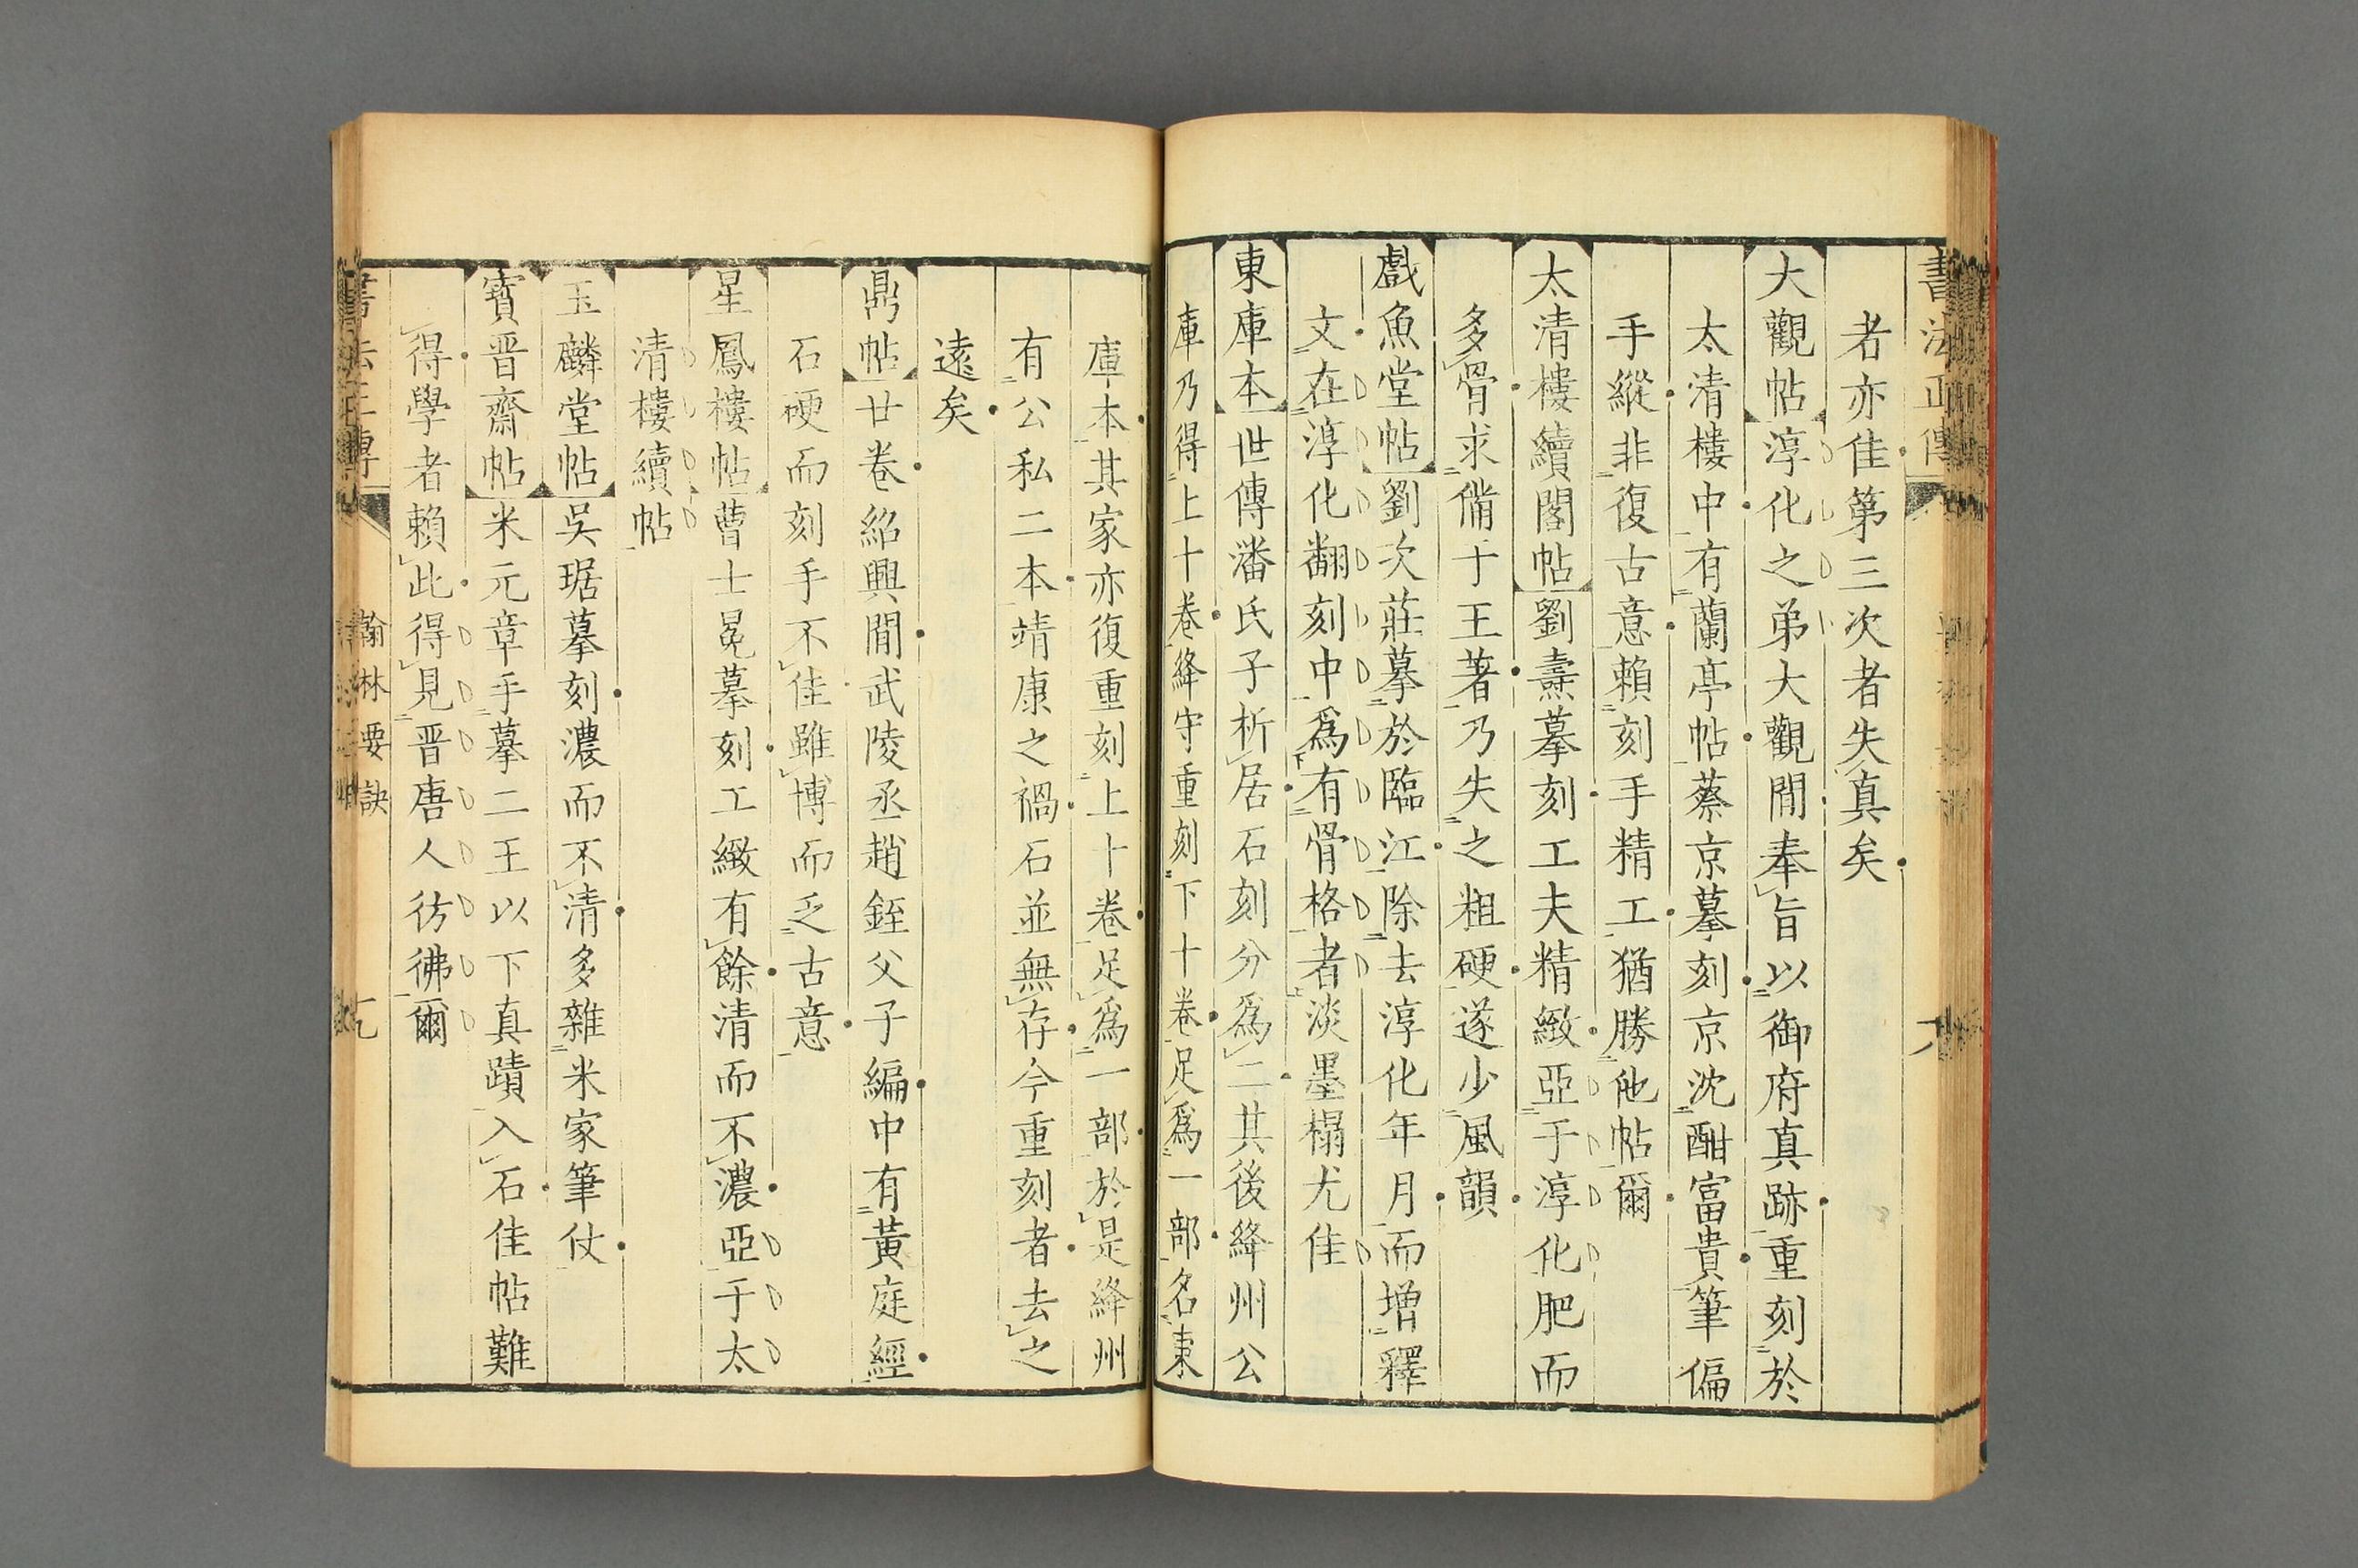 書法正傳
者亦佳第三次者失真矣
大觀帖淳化之弟大觀閒奉旨以御府真跡重刻於
太清樓中有蘭亭帖蔡京摹刻京沈酣富貴筆偏
手縱非復古意賴刻手精工猶勝他帖爾
太清樓續閣帖劉燾摹刻工夫精緻亞于淳化肥而
多骨求備于王著乃失之粗硬遂少風韻
戲魚堂帖劉次莊摹於臨江除去淳化年月而增釋
文在淳化翻刻中爲有骨格者淡墨榻尤佳
東庫本世傳潘氏子析居石刻分爲二其後絳州公
庫乃得上十卷絳守重刻下十卷足爲一部名東
庫本其家亦復重刻上十卷足爲一部於是絳州
有公私二本靖康之禍石並無存今重刻者去之
遠矣
鼎帖廿卷紹興閒武陵丞趙銍父子編中有黃庭經
石硬而刻手不佳雖博而乏古意
星鳳樓帖曹士冕摹刻工緻有餘清而不濃亞于太
清樓續帖
玉麟堂帖吳琚摹刻濃而不清多雜米家筆仗
寶晋齋帖米元章手摹二王以下真蹟入石佳帖難
得學者賴此得見晋唐人彷彿爾
翰林要訣